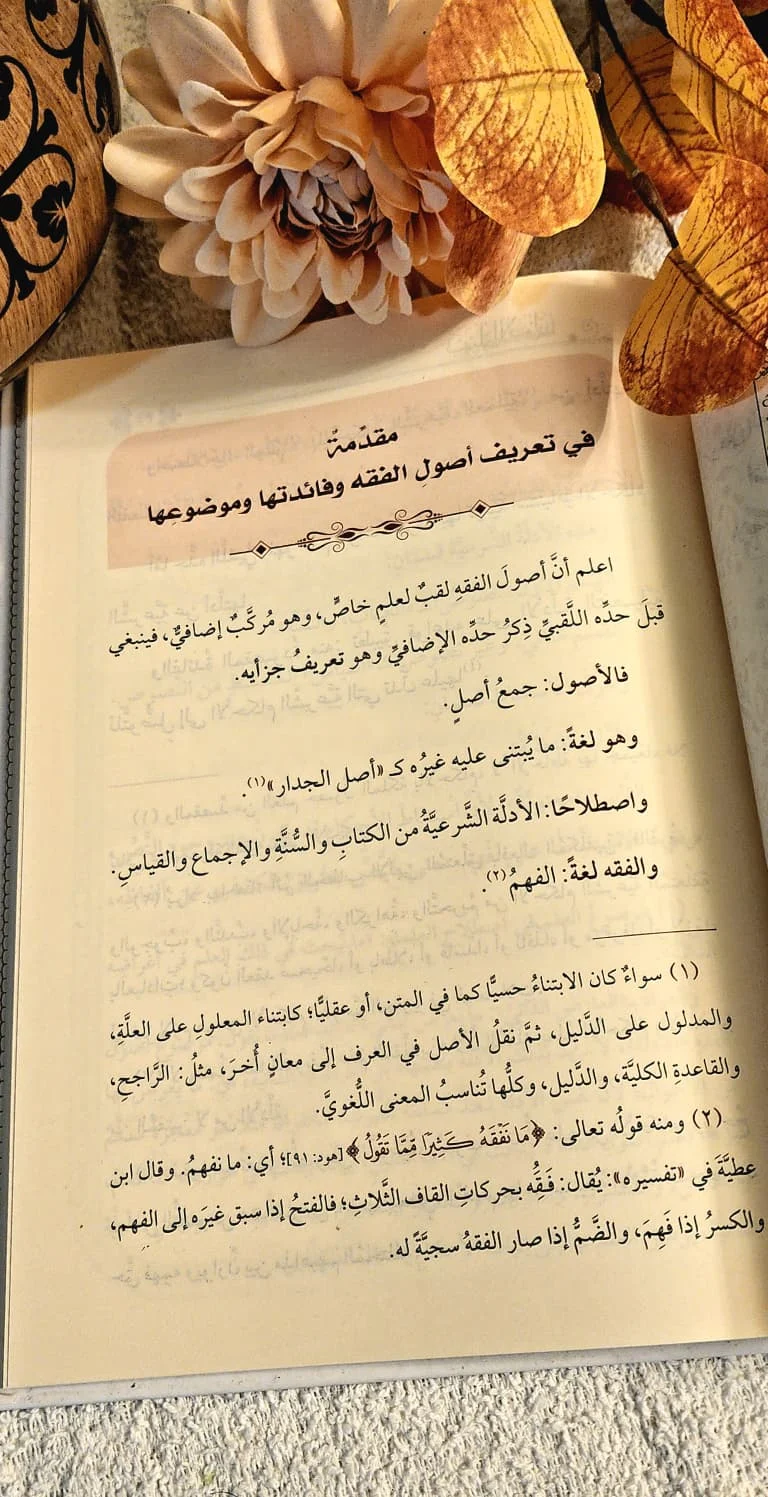 مقدّمةٌ
في تعريف أصولِ الفقه وفائدتها وموضوعِها
اعلم أنَّ أصولَ الفقهِ لقبٌ لعلمٍ خاصٍّ، وهو مُركَّبٌ إضافيٌّ، فينبغي
قبلَ حدِّه اللَّقبيِّ ذِكرُ حدِّه الإضافيِّ وهو تعريفُ جزأيه.
فالأصول: جمعُ أصلٍ.
وهو لغةً: ما يُبتنى عليه غيرُه كـ «أصل الجدار»(١).
واصطلاحًا: الأدلَّة الشَّرعيَّةُ من الكتابِ والسُّنَّةِ والإجماع والقياسِ.
والفقه لغةً: الفهمُ(٢).
(١) سواءٌ كان الابتناءُ حسيًّا كما في المتن، أو عقليًّا؛ كابتناء المعلولِ على العلَّةِ،
والمدلول على الدَّليل، ثمَّ نقلُ الأصل في العرف إلى معانٍ أُخرَ، مثلُ: الرَّاجحِ،
والقاعدةِ الكليَّة، والدَّليل، وكلُّها تُناسبُ المعنى اللُّغويَّ.
(٢) ومنه قولُه تعالى: ﴿مَا نَفْقَهُ كَثِيرًا مِّمَّا تَقُولُ﴾ [هود: ٩١]؛ أي: ما نفهمُ. وقال ابن
عطيَّةَ في «تفسيره»: يُقال: فَقِهُ بحركاتِ القاف الثَّلاثِ؛ فالفتحُ إذا سبق غيرَه إلى الفهم،
والكسرُ إذا فَهِمَ، والضَّمُّ إذا صار الفقهُ سجيَّةً له.